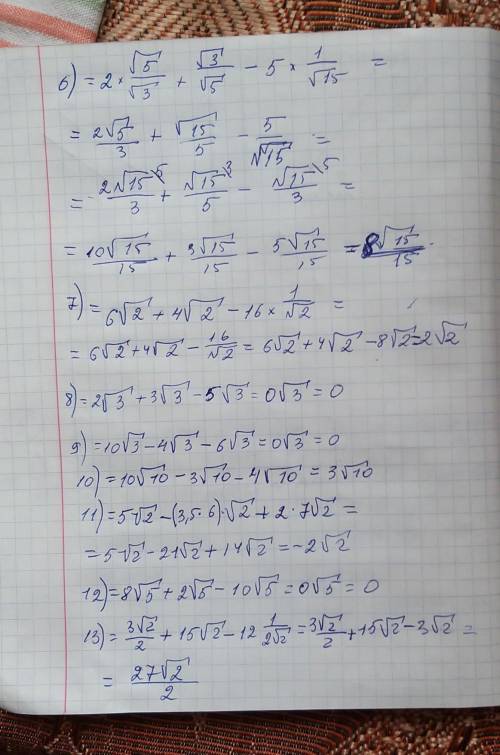 6) = 2 × √5/√3 + √3/√5 − 5 × 1/√15 =
= 2√5/3 + √15/5 − 5/√15 =
= 2√15\5/3 + √15\3/5 − √15\5/3 =
= 10√15/15 + 3√15/15 − 5√15/15 = 8√15/15
7) = 6√2 + 4√2 − 16 × 1/√2 =
= 6√2 + 4√2 − 16/√2 = 6√2 + 4√2 − 8√2 = 2√2
8) = 2√3 + 3√3 − 5√3 = 0√3 = 0
9) = 10√3 − 4√3 − 6√3 = 0√3 = 0
10) = 10√10 − 3√10 − 4√10 = 3√10
11) = 5√2 − (3,5·6)·√2 + 2·7√2 =
= 5√2 − 21√2 + 14√2 = −2√2
12) = 8√5 + 2√5 − 10√5 = 0√5 = 0
13) = 3√2/2 + 15√2 − 12 1/2√2 = 3√2/2 + 15√2 − 3√2 =
= 27√2/2